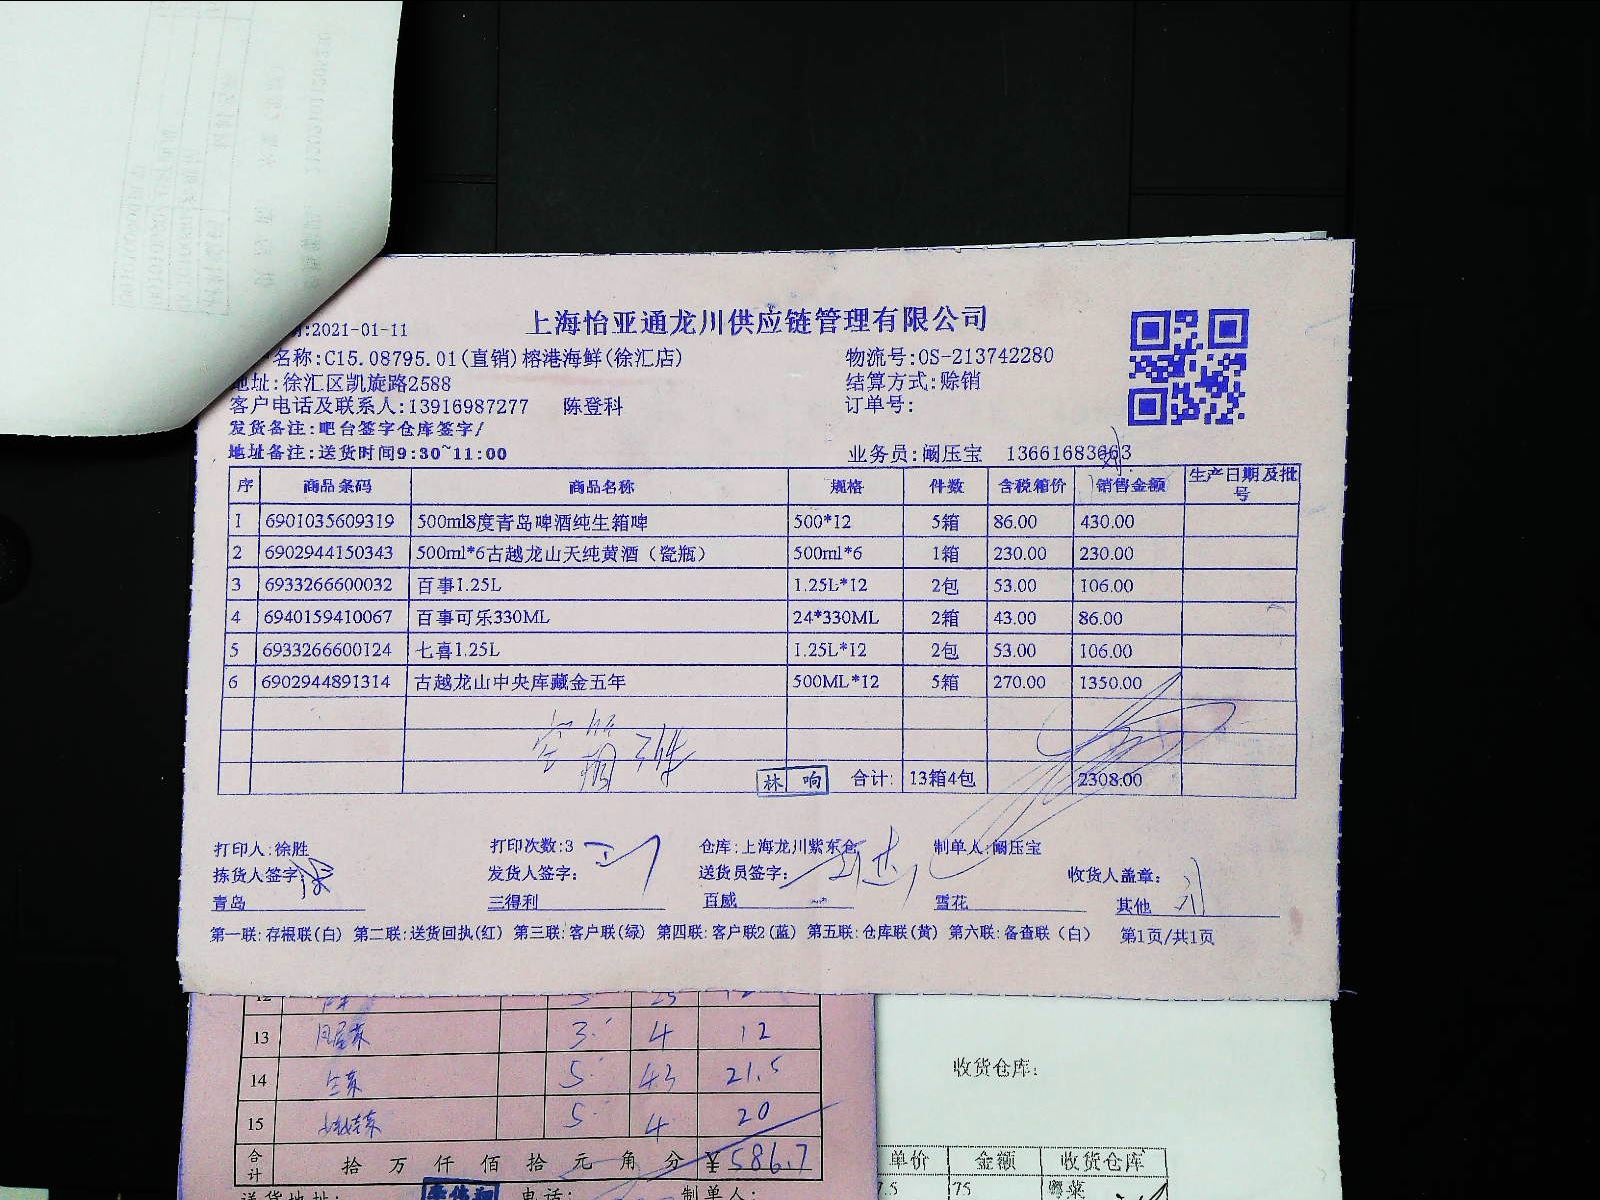 :2021-01-11
上海怡亚通龙川供应链管理有限公司
名称:C15.08795.01(直销)榕港海鲜(徐汇店)
物流号:OS-213742280
地址:徐汇区凯旋路2588
结算方式:赊销
客户电话及联系人:13916987277 陈登科
订单号:
发货备注:吧台签字仓库签字/
地址备注:送货时间9:30~11:00
业务员:阚压宝 13661683663
序 商品条码 商品名称 规格 件数 含税箱价 销售金额 生产日期及批号
1 6901035609319 500ml8度青岛啤酒纯生箱啤 500*12 5箱 86.00 430.00
2 6902944150343 500ml*6古越龙山天纯黄酒（瓷瓶） 500ml*6 1箱 230.00 230.00
3 6933266600032 百事1.25L 1.25L*12 2包 53.00 106.00
4 6940159410067 百事可乐330ML 24*330ML 2箱 43.00 86.00
5 6933266600124 七喜1.25L 1.25L*12 2包 53.00 106.00
6 6902944891314 古越龙山中央库藏金五年 500ML*12 5箱 270.00 1350.00
林响 合计: 13箱4包 2308.00
打印人:徐胜 打印次数:3 仓库:上海龙川紫东仓 制单人:阚压宝
拣货人签字: 发货人签字: 送货员签字: 收货人盖章:
青岛 三得利 百威 雪花 其他
第一联:存根联(白) 第二联:送货回执(红) 第三联:客户联(绿) 第四联:客户联2(蓝) 第五联:仓库联(黄) 第六联:备查联(白) 第1页/共1页
13 3 4 12
14 生菜 5 4.3 21.5
15 娃娃菜 5 4 20
合计 拾 万 仟 佰 拾 元 角 分 ¥586.7
送货地址: 电话: 制单人:
收货仓库:
单价 金额 收货仓库
7.5 75 粤菜